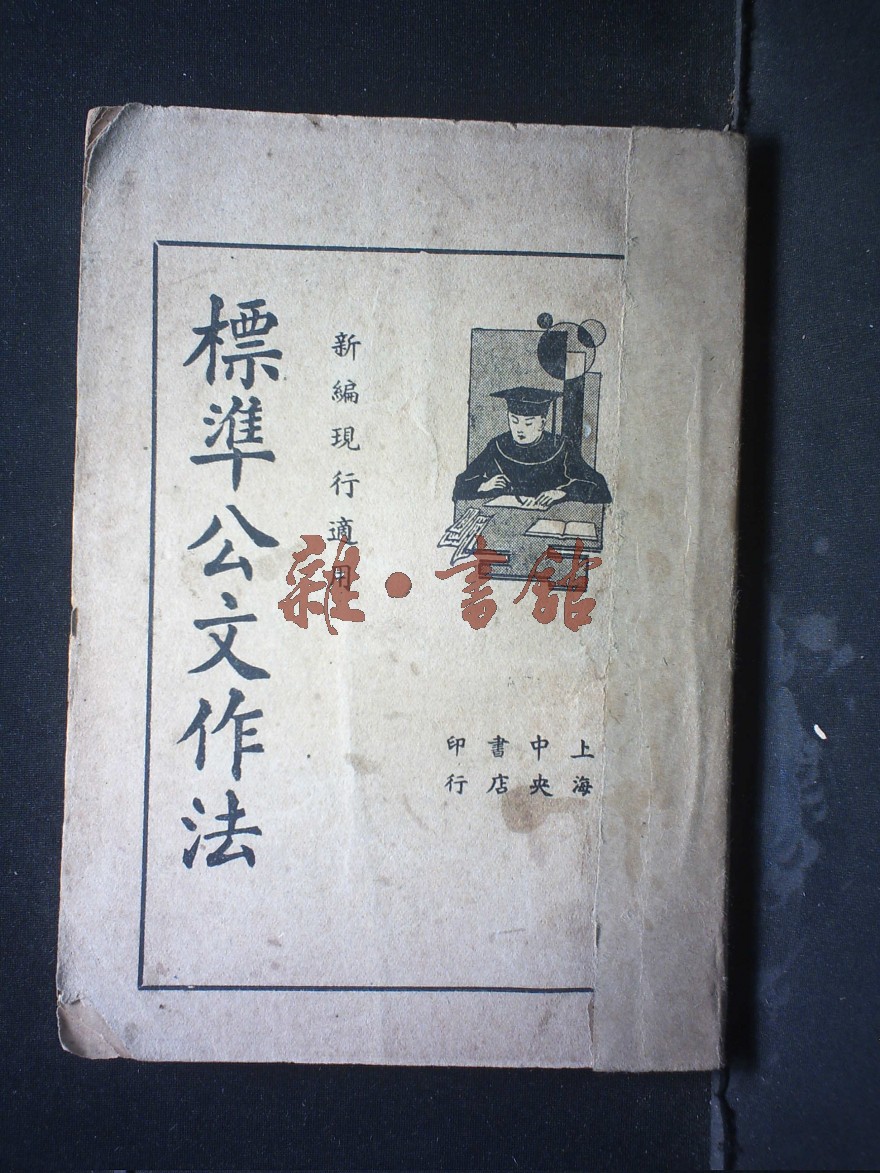 新編現行適用
標準公文作法
上海
中央
書店
印行
雜·書館